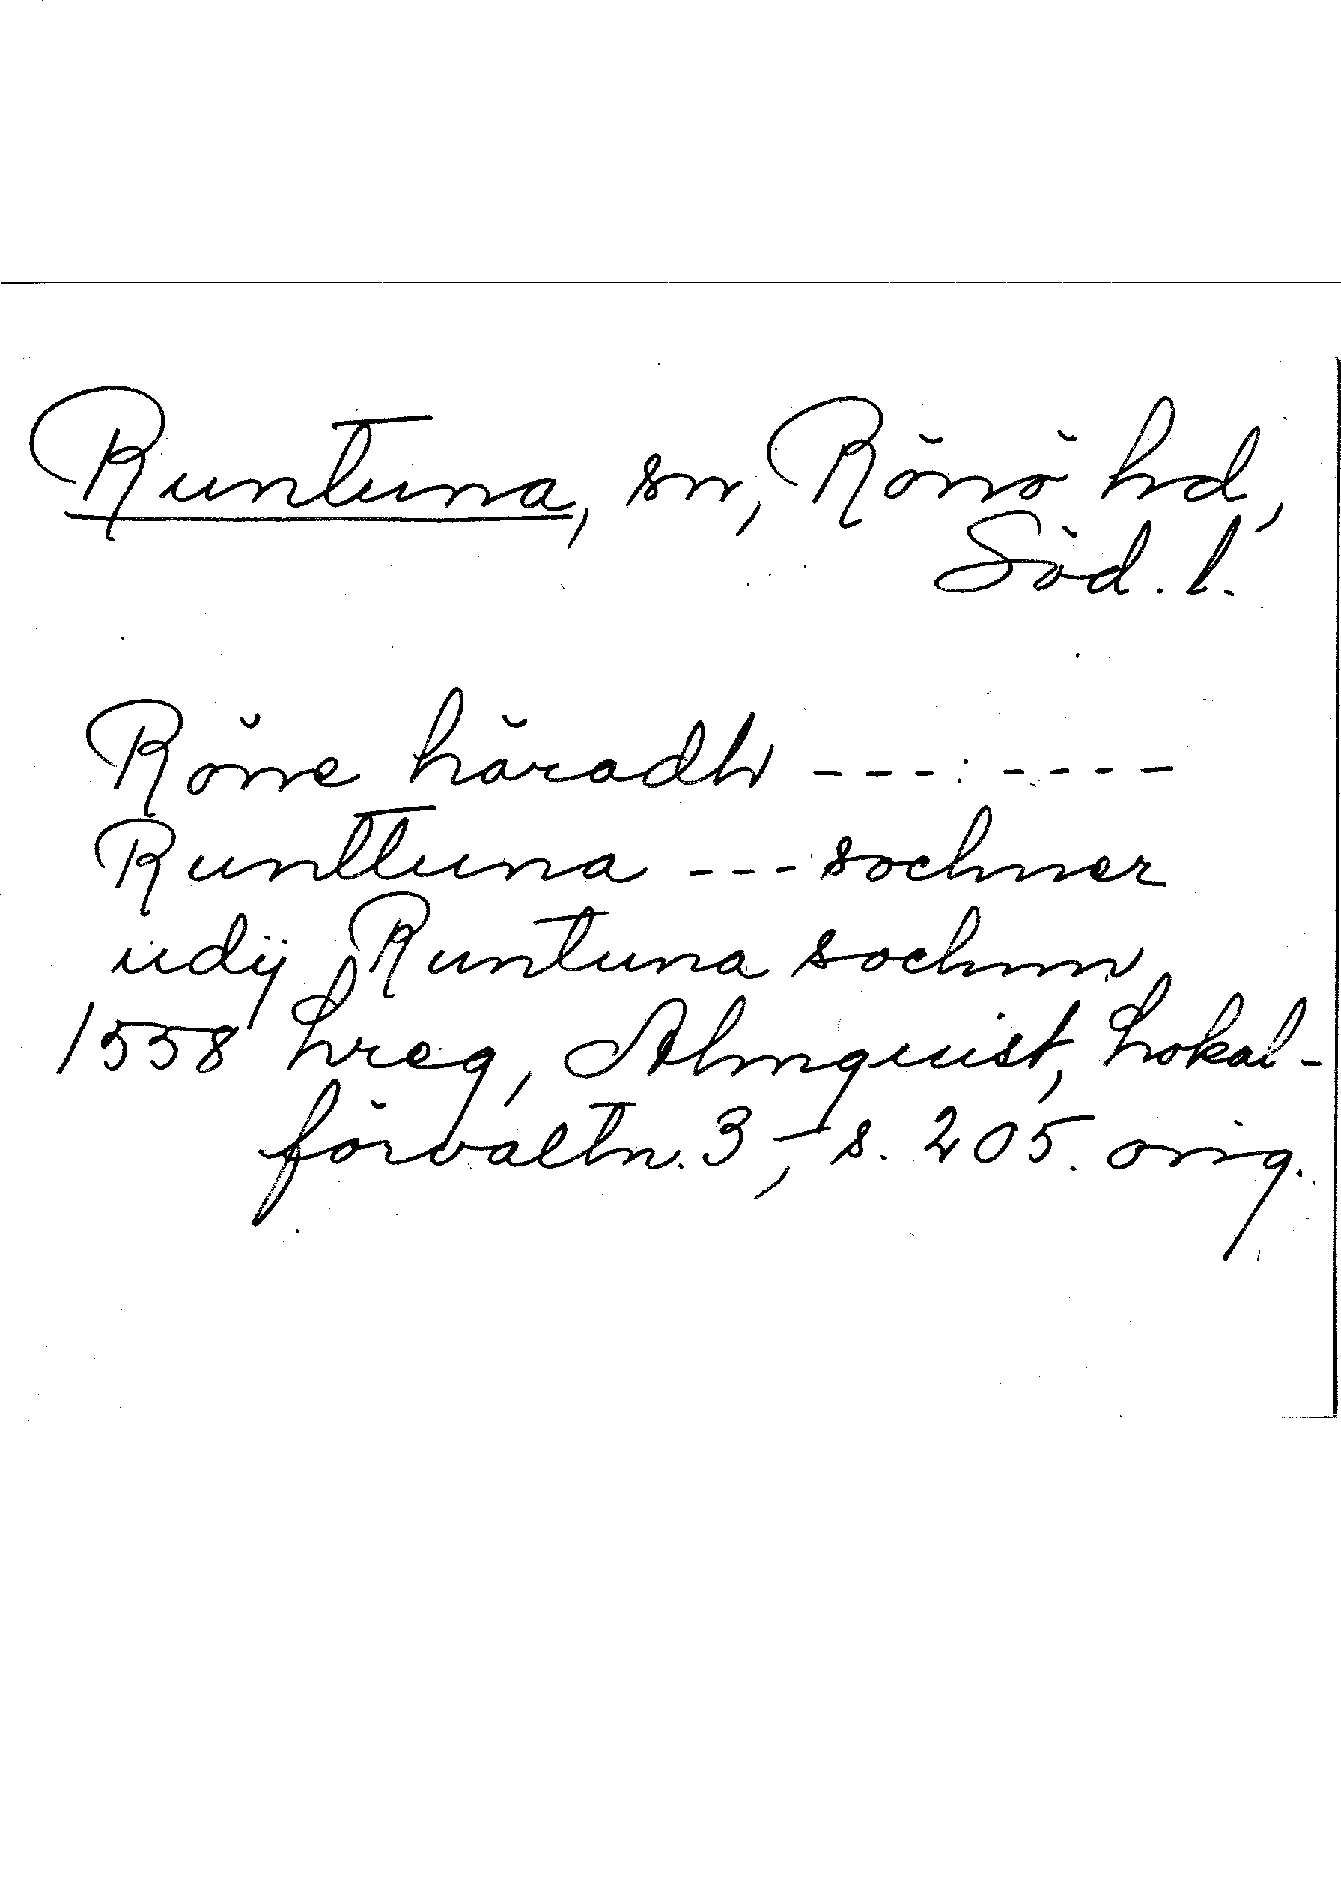 Runtuna, sn, Rönö hd,
Söd. l.
Röne häradh ---:----
Runttuna --- sochner
udij Runtuna sochnn
1558 Lreg, Almquist, Lokal-
förvaltn. 3, s. 205. orig.